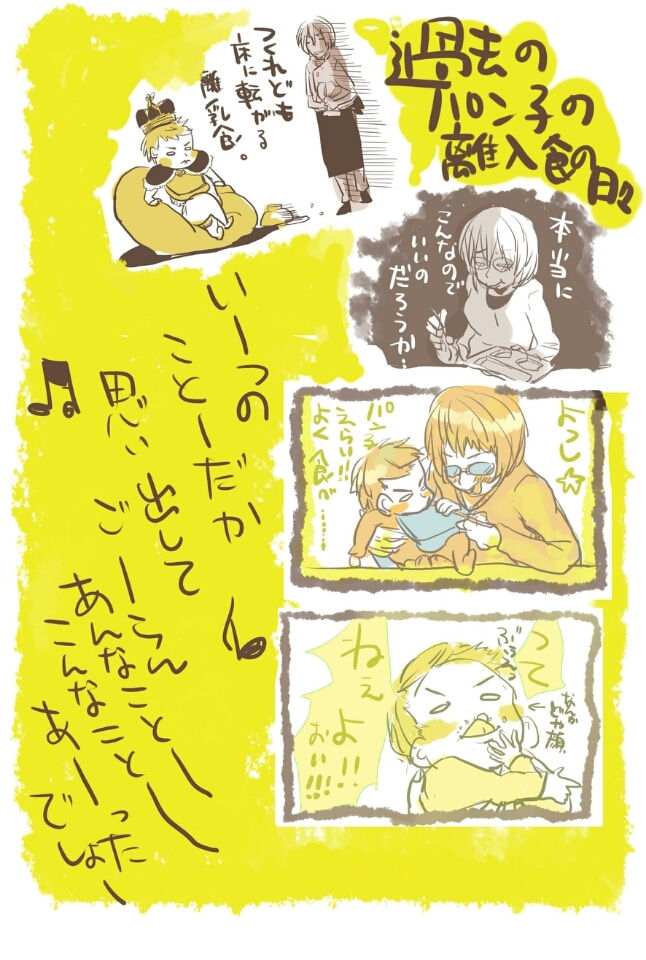 過去の
パン子の
離入食の日々
つくれども
床に転がる
離乳食。
本当に
こんなので
いいの
だろうか…
よっし☆
パン子
えらい!!
よく食べ……!
って
ねぇ
よ!!
おぉい!!!
なんか
どや顔
いーつの
ことーだか
思い出して
ごーらん
あんなことー
こんなことー
あーった
でしょー